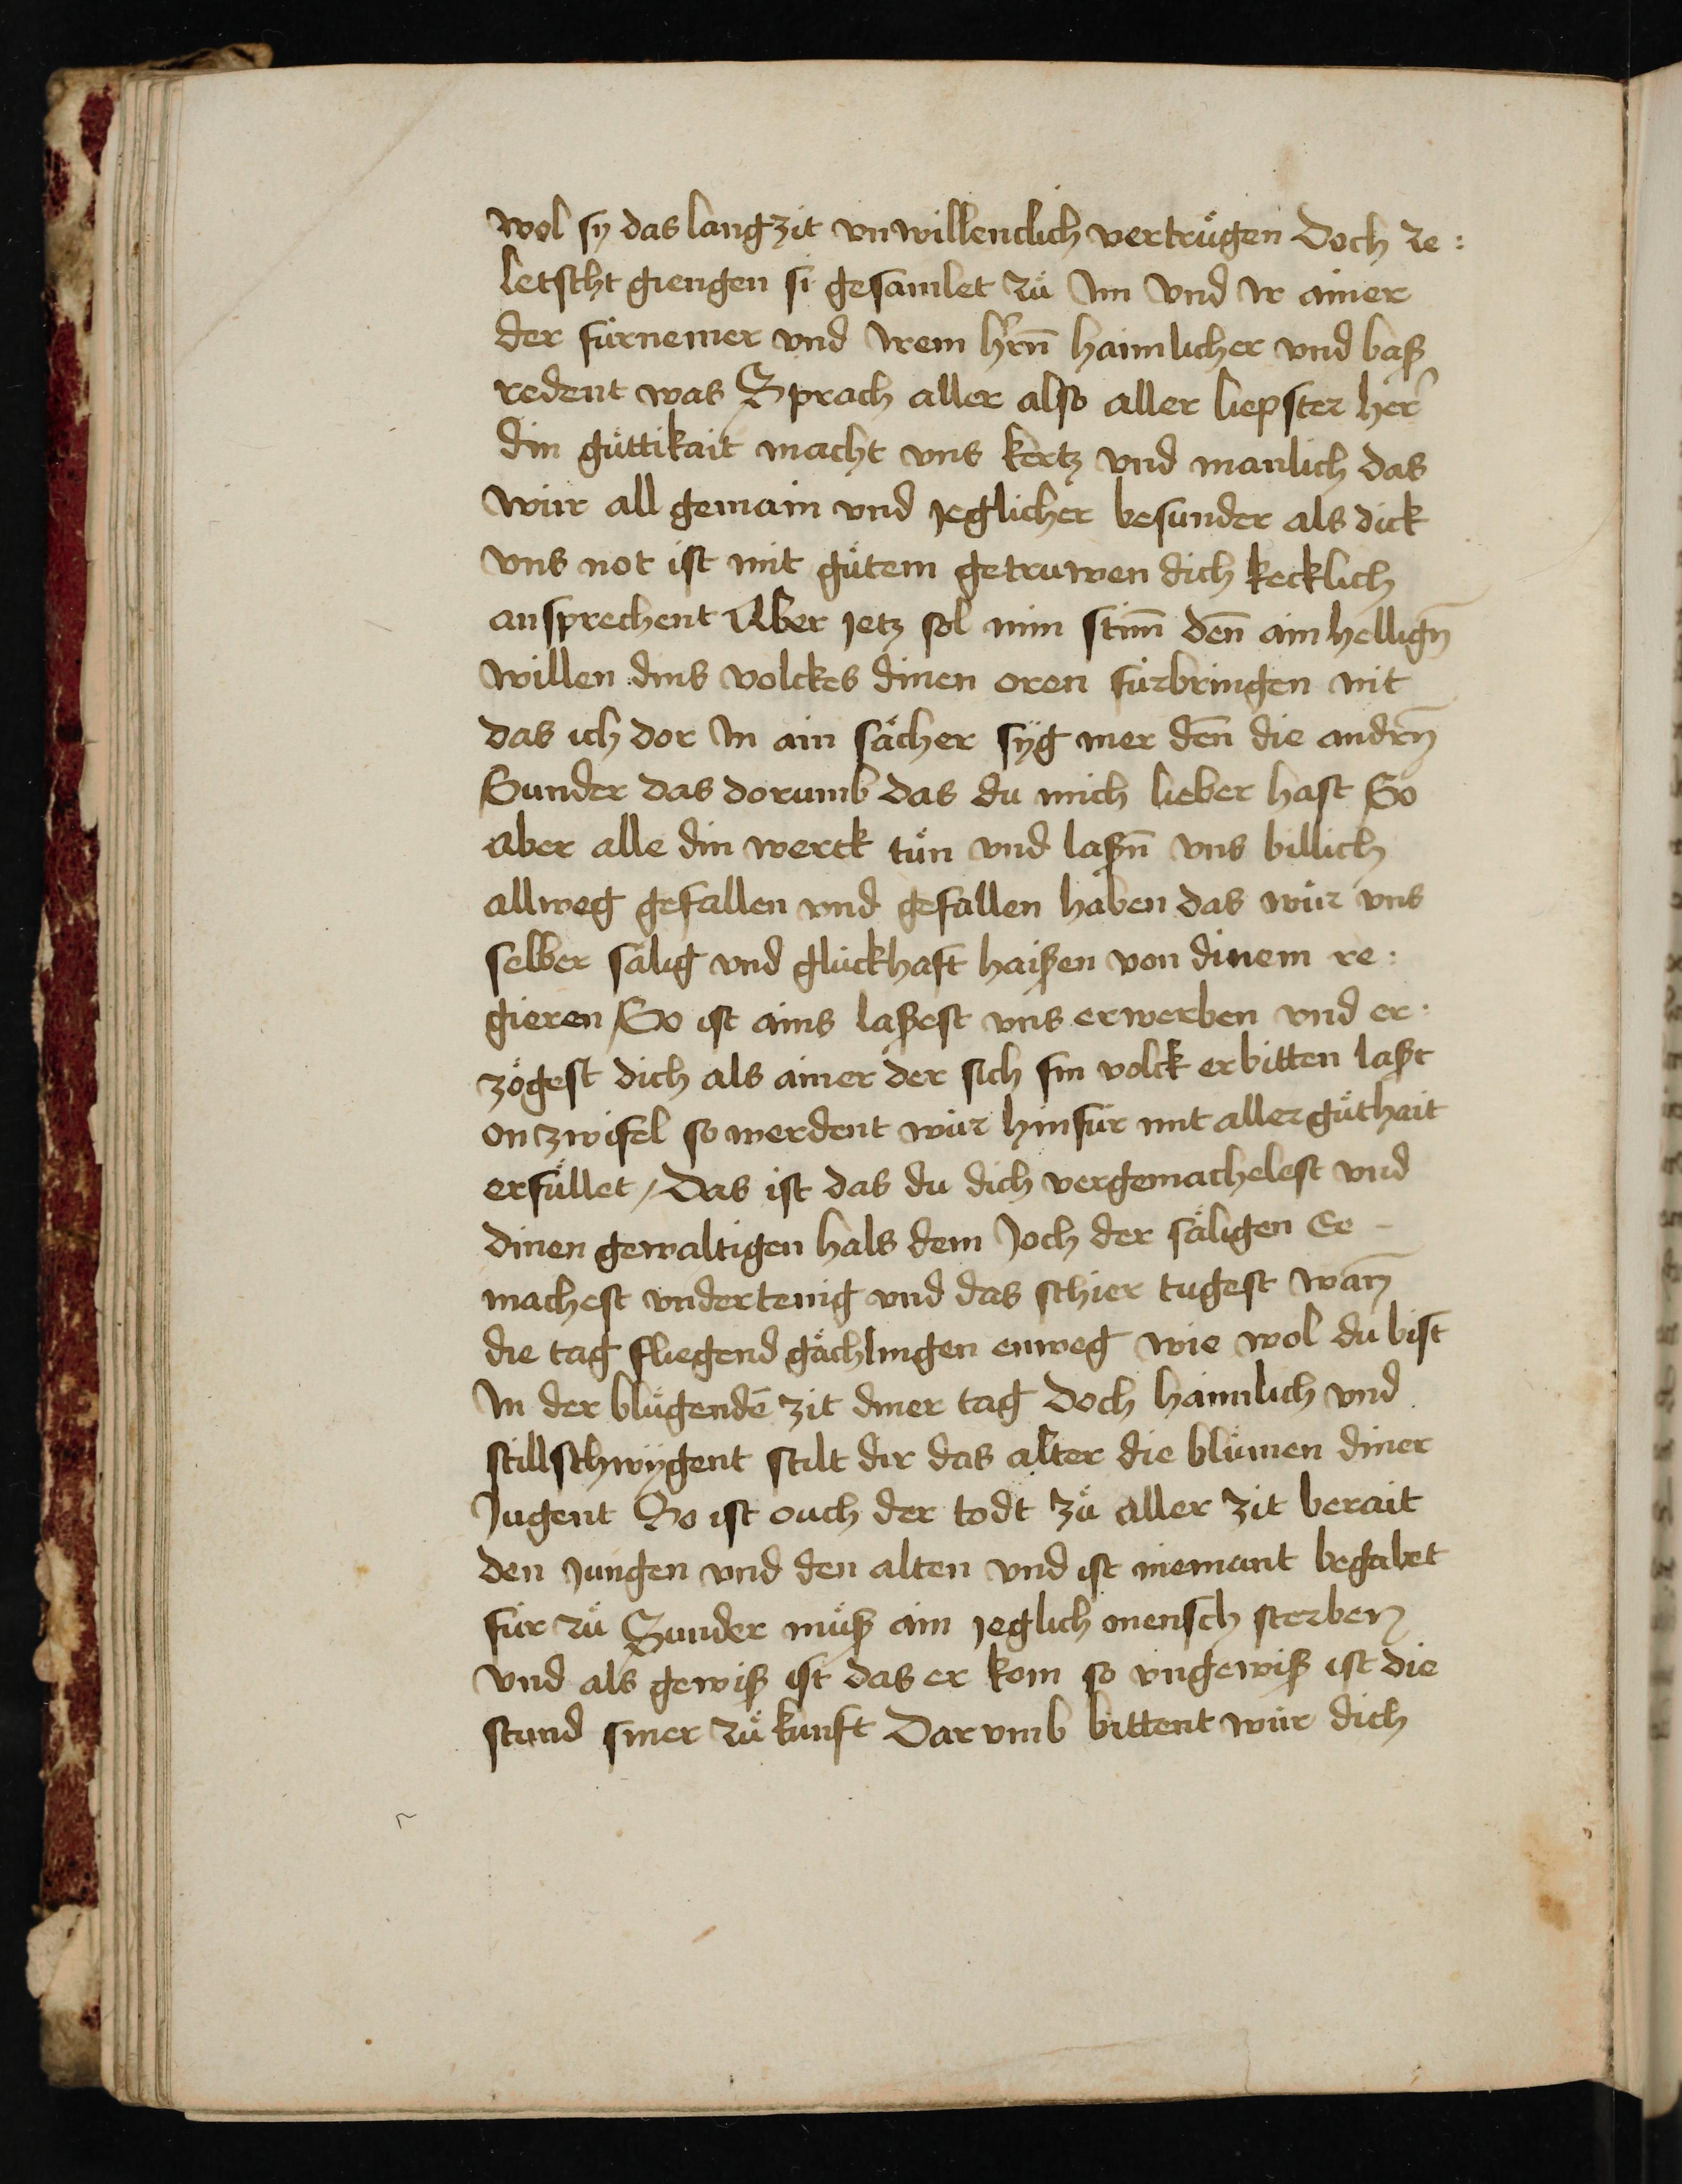 wol sy das lang zit vnwillenclich vertruͤgen Doch ze :
letscht giengen si gesamlet zuͤ Im vnd Ir ainer
der fürnemer vnd Irem hr̄n haimlicher vnd baß
redent was Sprach aller also aller liepster her̄
din guͤttikait macht vns kertz vnd manlich das
wür all gemain vnd jeglicher besunder als dick
vns not ist mit guͤtem getruwen dich kecklich
ansprechent Aber jetz sol min stim̄ den̄ ainhellign̄
willen dins volckes dinen oren fürbringen nit
das ich dor In ain saͤcher syg mer den̄ die andrn̄
Sunder das dorumb das du mich lieber hast So
aber alle din werck tuͤn vnd laßn̄ vns billich
allweg gefallen vnd gefallen haben das wür vns
selber saͤlig vnd glückhaft haißen von dinem re :
gieren So ist ains laßest vns erwerben vnd er :
zögest dich als ainer der sich sin volck erbitten laßt
on zwifel so werdent wür hinfür mit aller guͤthait
erfüllet / Das ist das du dich vergemachelest vnd
dinen gewaltigen hals dem Joch der saͤligen Ee -
machest vndertenig vnd das schier tugest wan̄
die tag fliegend gaͤchlingen enweg wie wol du bist
In der bluͤgendē zit diner tag Doch haimlich vnd
stillschwygent stilt dir das alter die bluͤmen diner
Jugent So ist ouch der todt zuͤ aller zit berait
den Jungen vnd den alten vnd ist niemant begabet
für zuͤ Sunder muͤß ain jeglich mensch sterben
vnd als gewiß ist das er kom so vngewiß ist die
stund siner zuͤkunft Dar vmb bittent wür dich